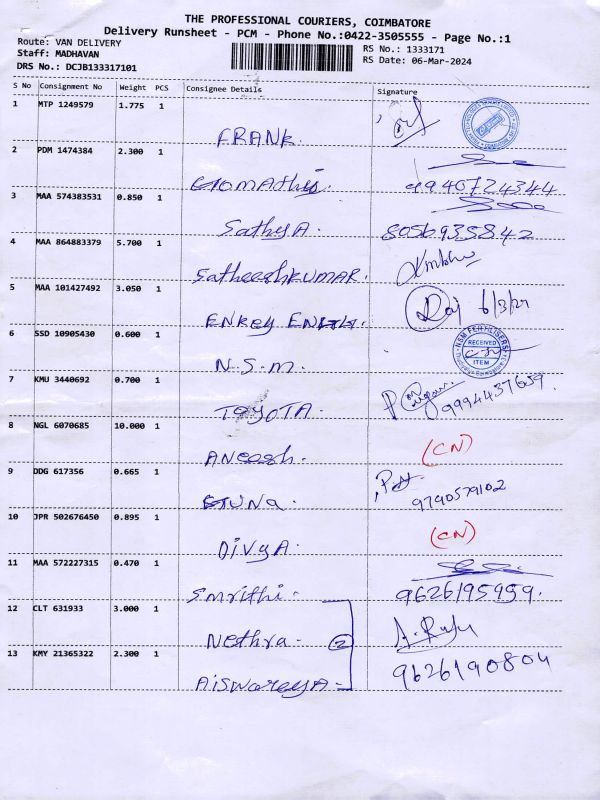 THE PROFESSIONAL COURIERS, COIMBATORE
Delivery Runsheet - PCM - Phone No.:0422-3505555 - Page No.:1
Route: VAN DELIVERY
RS No.: 1333171
Staff: MADHAVAN
RS Date: 06-Mar-2024
DRS No.: DCJB133317101
S No Consignment No Weight PCS Consignee Details Signature
1 MTP 1249579 1.775 1 FRANK
2 PDM 1474384 2.300 1 Gomathi 9940724344
3 MAA 574383531 0.850 1 SathyA. 8056935842
4 MAA 864883379 5.700 1 SatheeshKUMAR.
5 MAA 101427492 3.050 1 ENKEY 6/3/24
6 SSD 10905430 0.600 1 N.S.M. NSM FERTILISERS RECEIVED ITEM
7 KMU 3440692 0.700 1 TOYOTA. 9994437659.
8 NGL 6070685 10.000 1 ANeesh. (CN)
9 DDG 617356 0.665 1 GUNa. 9790579102
10 JPR 502676450 0.895 1 DivyA. (CN)
11 MAA 572227315 0.470 1 Smrithi. 9626195959.
12 CLT 631933 3.000 1 Nethra- 2
13 KMY 21365322 2.300 1 AiswareyA- 9626190804